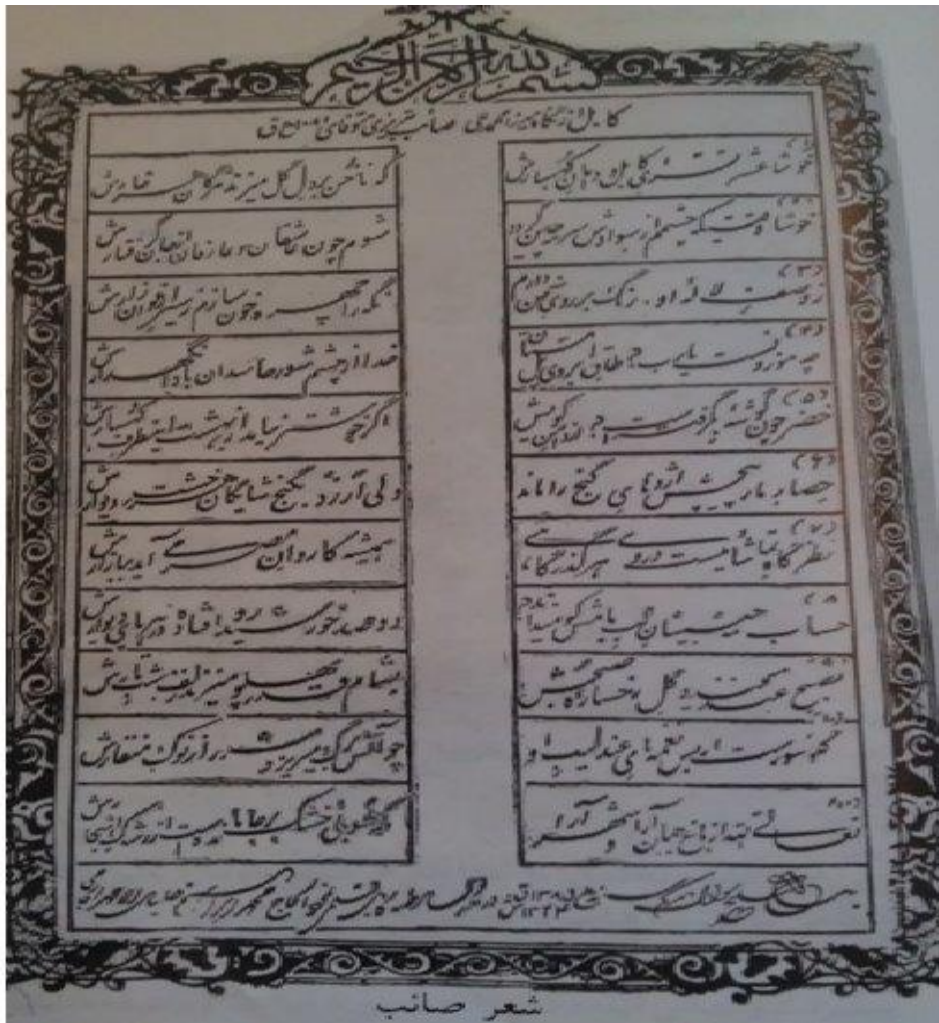 بسم الله الرحمن الرحیم
کابل از نگاه میرزا محمد علی صائب تبریزی متوفای
خوشا عشرت سرای کابل و دامان کهسارش
که ناخن بر دل گل میزند مژگان هر خارش
خوشا وقتیکه چشمم از سوادش سرمه چین گردد
شوم چون عاشقان و عارفان از جان گرفتارش
(۳)
ز وصف لاله او رنگ بر روی سخن دارم
نگه را چهره خون سازم ز سیر ارغوان زارش
(۴)
چه موزونست یارب طاق ابروی پل مستان
خدا از چشم شور زاهدان بادا نگهدارش
(۵)
خضر چون گوشه بگرفتست از دامن کوهش
اگر خوشتر نیاید از بهشت این طرف کهسارش
(۶)
حصار مارپیچش اژدهای گنج را ماند
ولی ارزد بگنج شایگان هر خشت دیوارش
(۷)
نظرگاه تماشائیست در وی هر گذرگاهی
همیشه کاروان مصر می آید ببازارش
حساب مه جبینان لب بامش که میداند
دو صد خورشید رو افتاده در هر پای دیوارش
بصبح عید میخندد گل رخساره صبحش
بشام قدر پهلو میزند زلف شب تارش
نغمهای عندلیب او
چو آتش برگ میریزد شرر از نوک منقارش
تعالی الله از باغ جهان آرا و شهر آرا
که طوبی خشک بر جا مانده است از رشک اشجارش
شعر صائب